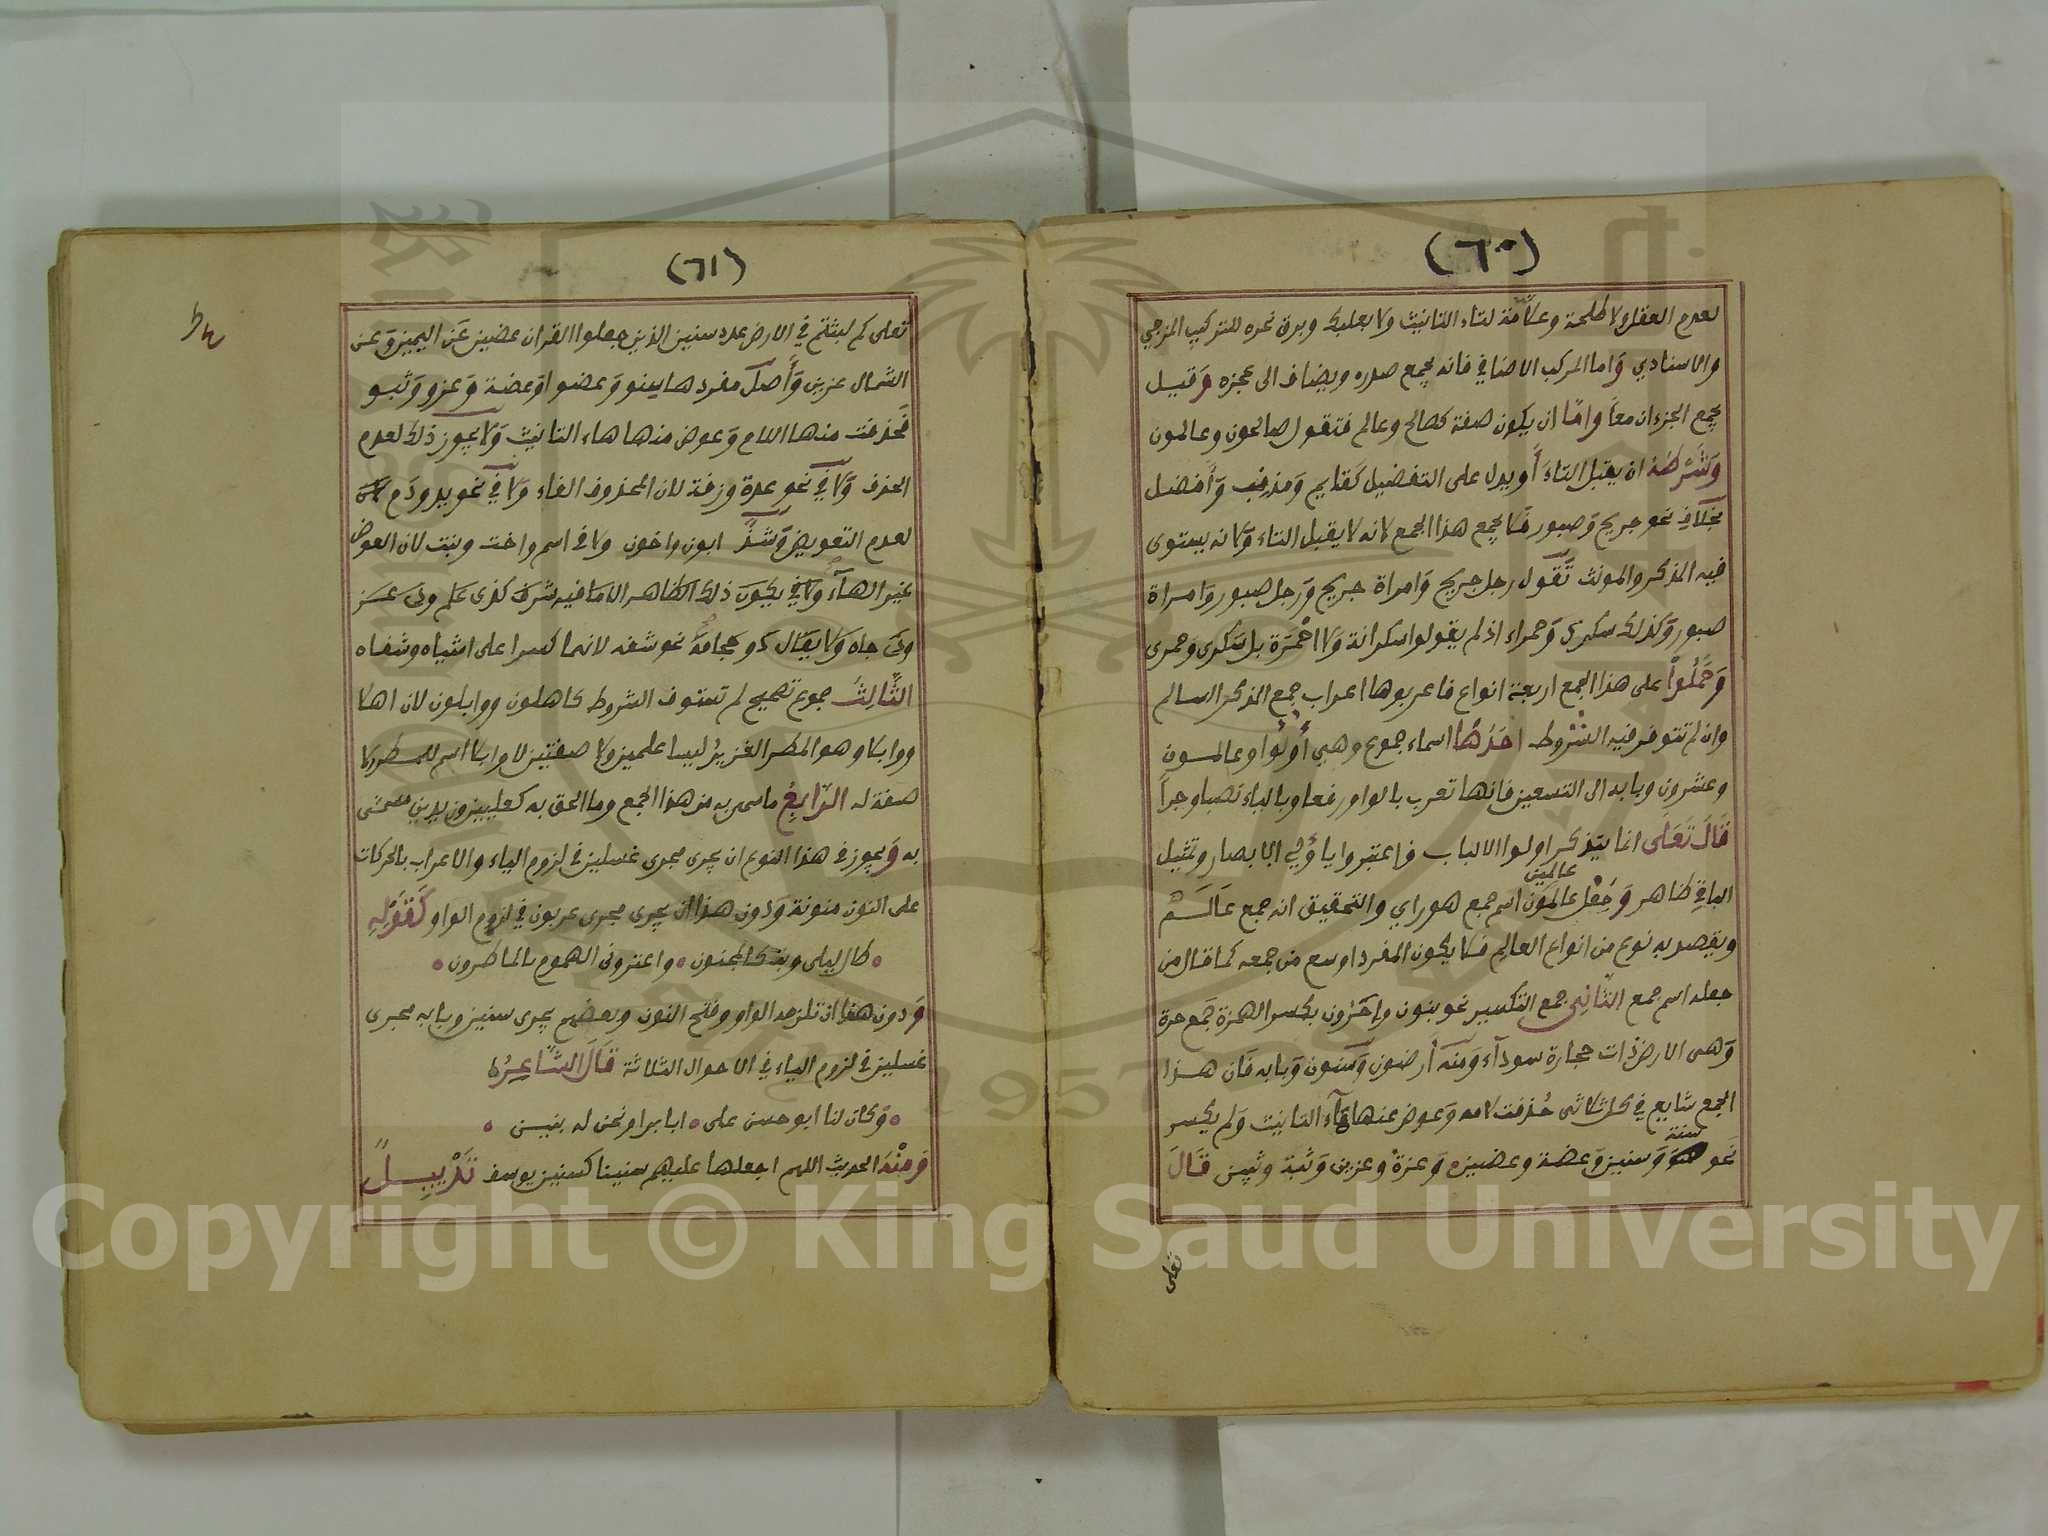 (٦٠)
لعدم العقل ولا طلحة وعلامة لتاء التانيث ولا بعلبك وبرق نحره للتركيب المزجي
والاسنادي واما المركب الاضافي فانه يجمع صدره ويضاف الى عجزه وقيل
يجمع الجزءان معا واما ان يكون صفة كصالح وعالم فتقول صالحون وعالمون
وشرطه ان يقبل التاء أو يدل على التفضيل كقايم ومذنب وأفضل
بخلاف نحو جريح وصبور فلا يجمع هذا الجمع لانه لا يقبل التاء ولانه يستوى
فيه المذكر والمونث تقول رجل جريح وامراة جريح ورجل صبور وامراة
صبور وكذلك سكرى وحمراء اذ لم يقولوا سكرانة ولا احمرة بل سكرى وحمرى
وحملوا على هذا الجمع اربعة انواع فاعربوها اعراب جمع المذكر السالم
وان لم تتوفر فيه الشروط احدها اسماء جموع وهي أولوا وعالمون
وعشرون وبابه الى التسعين فانها تعرب بالواو رفعا وبالياء نصبا وجرا
قال تعلى انما يتذكر اولوا الالباب فاعتبروا ياؤلي الابصار وتمثيل
عالمين
الباقي ظاهر وجعل عالمون اسم جمع هو راي والتحقيق انه جمع عالم
ويقصد به نوع من انواع العالم فلا يكون المفرد اوسع من جمعه كما قال من
جعله اسم جمع الثاني جمع التكسير نحو بنون وإحرون بكسر الهمزة جمع حرة
وهي الارض ذات حجارة سوداء ومنه أرضون وسنون وبابه فان هذا
الجمع شايع في كل ثلاثى حذفت لامه وعوض عنها هاء التانيث ولم يكسر
سنة
نحو وسنين وعضة وعضين وعزة وعزين وثبة وثبين قال
تعلى
(٦١)
تعلى كم لبثتم في الارض عدد سنين الذين جعلوا القران عضين عن اليمين وعن
الشمال عزين وأصل مفردها سنو وعضو او عضة وعزو وثبو
فحذفت منها اللام وعوض منها هاء التانيث ولا يجوز ذلك لعدم
الحذف ولا في نحو عدة وزنة لان المحذوف الفاء ولا في نحو يد ودم
لعدم التعويض وشذ ابون واخون ولا في اسم واخت وبنت لان العوض
غير الهاء
ولا يقال نحو شفه لانهما كسرا على اشياه وشفاه
الثالث جموع تصحيح لم تستوف الشروط كاهلون ووابلون لان اهلا
ووابلا وهو المطر الغزير ليسا علمين ولا صفتين لا وابلا اسم للمطر لا
صفة له الرابع ما سمى به من هذا الجمع وما الحق به كعليين وزيدين مسمى
به ويجوز في هذا النوع ان يجرى مجرى غسلين في لزوم الياء والاعراب بالحركات
على النون منونة ودون هذا ان يجرى مجرى عربون في لزوم الواو كقوله
طال ليلى وبت كالمجنون واعترونى الهموم بالماطرون
ودون هذا ان تلزمه الواو وفتح النون وبعضهم يجرى سنين وبابه مجرى
غسلين في لزوم الياء في الاحوال الثلاثة قال الشاعر
وكان لنا ابو حسن على ابا برا ونحن له بنين
ومنه الحديث اللهم اجعلها عليهم سنينا كسنين يوسف تذييل
Copyright © King Saud University
1957